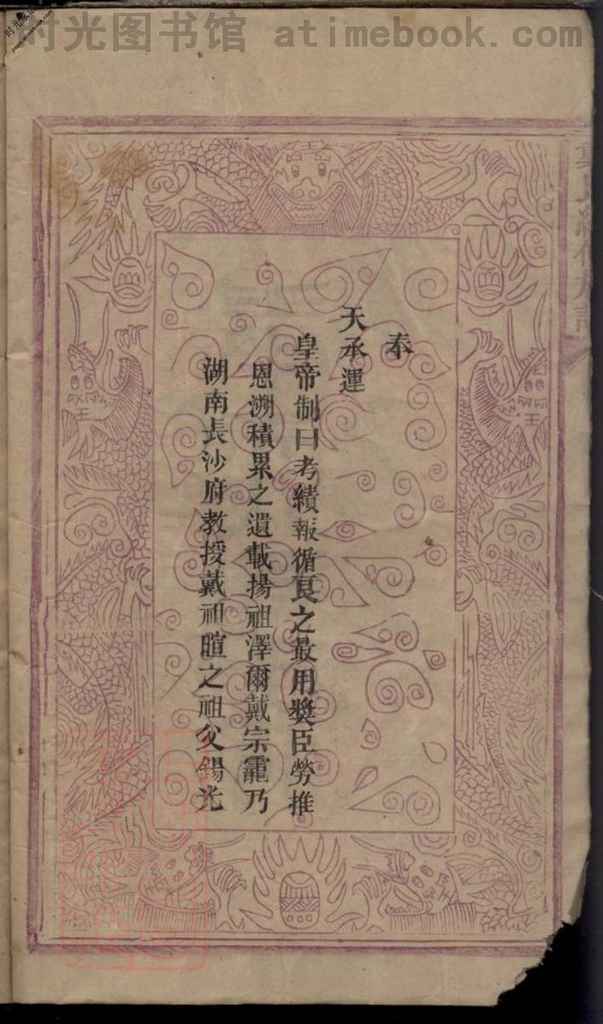 时光图书馆 atimebook.com
奉
天承運
皇帝制曰考績報循良之最用獎臣勞推
恩溯積累之遺載揚祖澤爾戴宗霳乃
湖南長沙府教授戴祖暄之祖父錫光